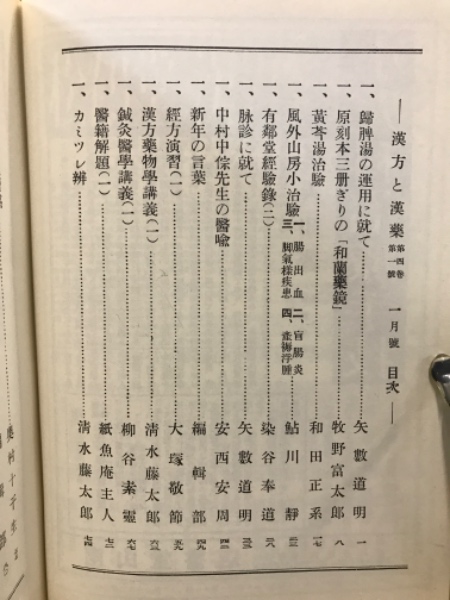 ― 漢方と漢藥 第四卷 第一號 一月號 目次 ―
一、歸脾湯の運用に就て……矢數道明 一
一、原刻本三册ぎりの「和蘭藥鏡」……牧野富太郎 八
一、黃芩湯治驗……和田正系 一七
一、風外山房小治驗 一、腸出血 二、盲腸炎 三、脚氣樣疾患 四、產褥浮腫……鮎川靜
一、有鄰堂經驗錄(二)……染谷奉道 二八
一、脉診に就て……矢數道明
一、中村中倧先生の醫喩……安西安周
一、新年の言葉……編輯部 四九
一、經方演習(一)……大塚敬節 五九
一、漢方藥物學講義(一)……淸水藤太郎 六三
一、鍼灸醫學講義(一)……柳谷素靈 六七
一、醫籍解題(一)……紙魚庵主人 七三
一、カミツレ辨……淸水藤太郎 七四